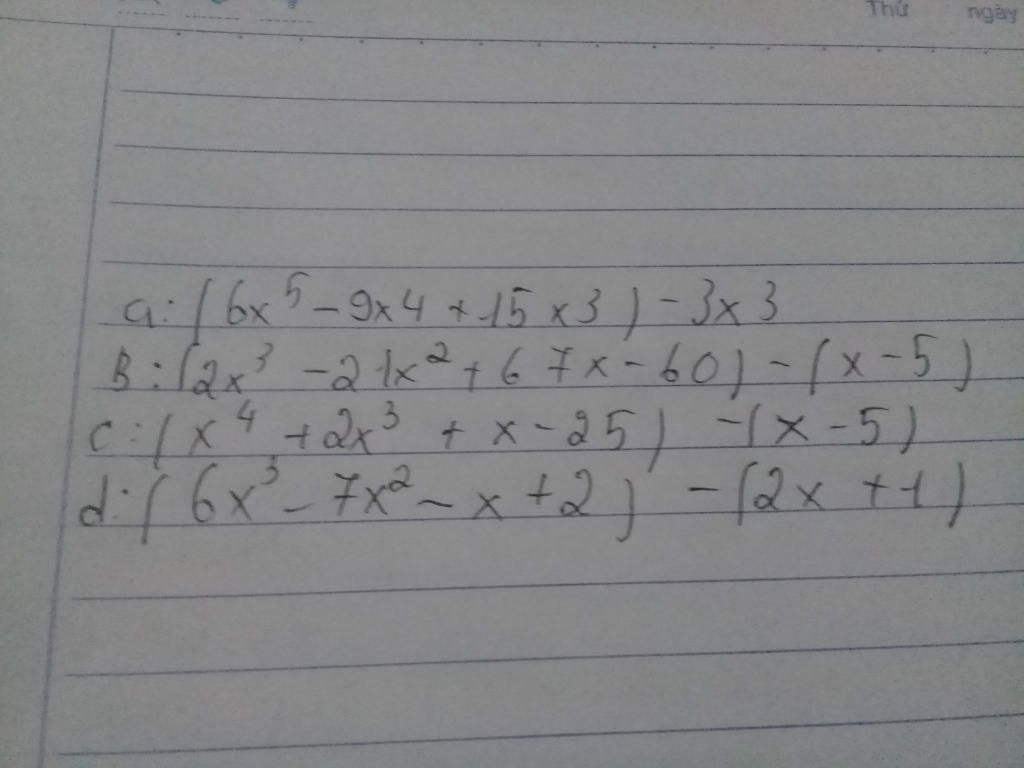 Thứ ngày
a: (6x⁵ - 9x4 + 15x3) - 3x3
B: (2x³ - 21x² + 67x - 60) - (x - 5)
c: (x⁴ + 2x³ + x - 25) - (x - 5)
d: (6x³ - 7x² - x + 2) - (2x + 1)